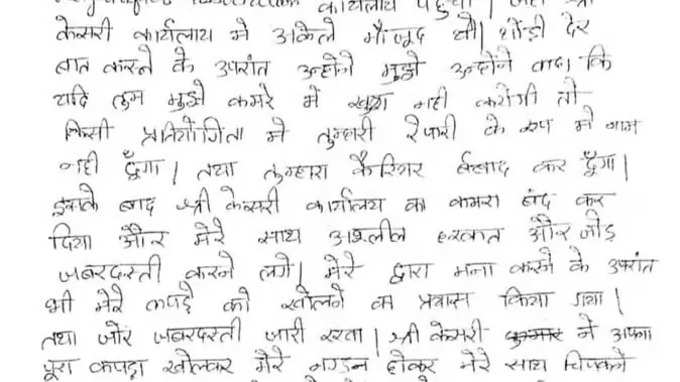 कार्यालय पहुंची। जहाँ श्री
केसरी कार्यालय मे अकेले मौजूद थे। थोड़ी देर
बात करने के उपरांत उन्होंने मुझे उन्होंने कहा कि
यदि तुम मुझे कमरे में खुश नही करोगी तो
किसी प्रतियोगिता मे तुम्हारी रेफारी के रूप मे नाम
नही दूँगा। तथा तुम्हारा कैरियर बर्बाद कर दूँगा।
इसके बाद श्री केसरी कार्यालय का कमरा बंद कर
दिया और मेरे साथ अश्लील हरकत और जोड़
जबरदस्ती करने लगे। मेरे द्वारा मना करने के उपरांत
भी मेरे कपड़े को खोलने का प्रयास किया गया।
तथा जोर जबरदस्ती जारी रखा। श्री केसरी कुमार ने अपना
पूरा कपड़ा खोलकर मेरे नग्न होकर मेरे साथ चिपकने